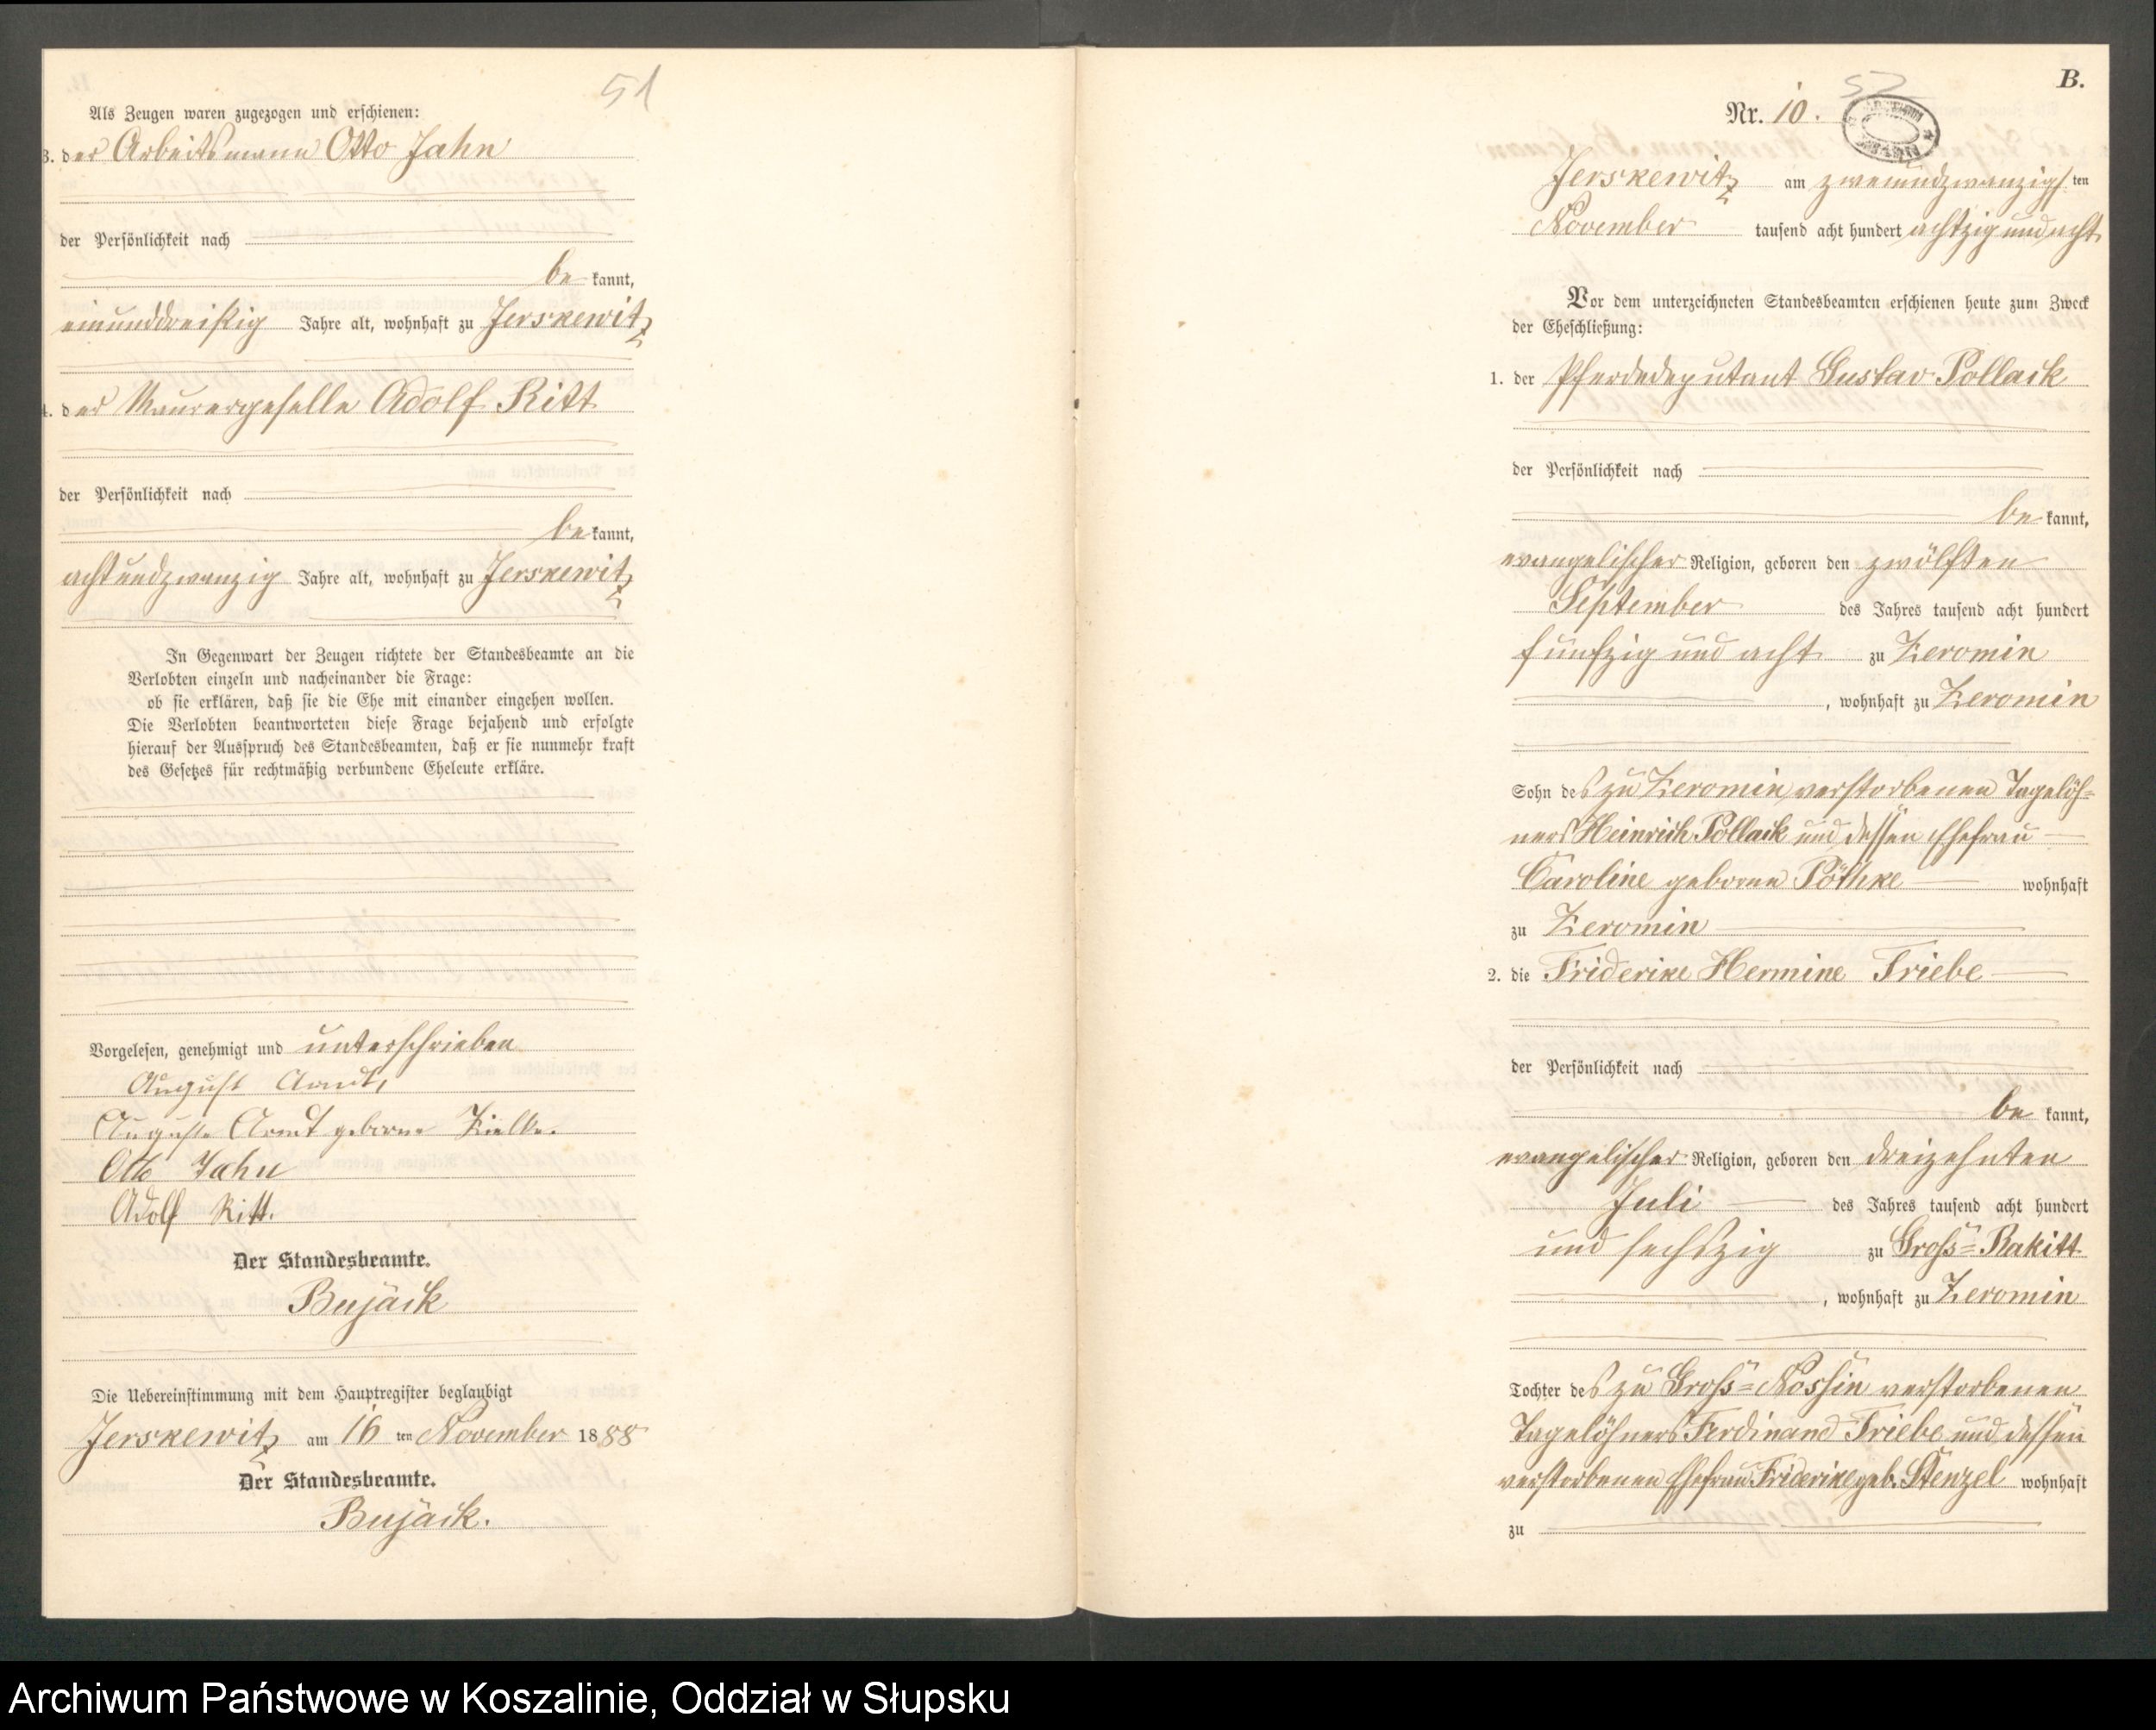 51
Als Zeugen waren zugezogen und erschienen:
3. der Arbeitsmann Otto Jahn
der Persönlichkeit nach
be kannt,
einunddreißig Jahre alt, wohnhaft zu Jerskewitz
4. der Maurergeselle Adolf Ritt
der Persönlichkeit nach
be kannt,
achtundzwanzig Jahre alt, wohnhaft zu Jerskewitz
In Gegenwart der Zeugen richtete der Standesbeamte an die
Verlobten einzeln und nacheinander die Frage:
ob sie erklären, daß sie die Ehe mit einander eingehen wollen.
Die Verlobten beantworteten diese Frage bejahend und erfolgte
hierauf der Ausspruch des Standesbeamten, daß er sie nunmehr kraft
des Gesetzes für rechtmäßig verbundene Eheleute erkläre.
Vorgelesen, genehmigt und unterschrieben
August Arndt,
Auguste Arndt geborne Zielke.
Otto Jahn
Adolf Ritt.
Der Standesbeamte.
Bujäck
Die Uebereinstimmung mit dem Hauptregister beglaubigt
Jerskewitz am 16 ten November 1888
Der Standesbeamte.
Bujäck.
52
B.
Nr. 10.
Jerskewitz am zweiundzwanzigsten
November tausend acht hundert achtzig und acht
Vor dem unterzeichneten Standesbeamten erschienen heute zum Zweck
der Eheschließung:
1. der Pferdedeputant Gustav Pollack
der Persönlichkeit nach
be kannt,
evangelischer Religion, geboren den zwölften
September des Jahres tausend acht hundert
fünfzig und acht zu Zeromin
, wohnhaft zu Zeromin
Sohn des zu Zeromin verstorbenen Tagelöh-
ners Heinrich Pollack und dessen Ehefrau
Caroline geborne Pöthke wohnhaft
zu Zeromin
2. die Friderike Hermine Triebe
der Persönlichkeit nach
be kannt,
evangelischer Religion, geboren den dreizehnten
Juli des Jahres tausend acht hundert
und sechszig zu Groß-Rakitt
, wohnhaft zu Zeromin
Tochter des zu Groß-Nossin verstorbenen
Tagelöhners Ferdinand Triebe und dessen
verstorbenen Ehefrau Friderike geb. Stenzel wohnhaft
zu
Archiwum Państwowe w Koszalinie, Oddział w Słupsku